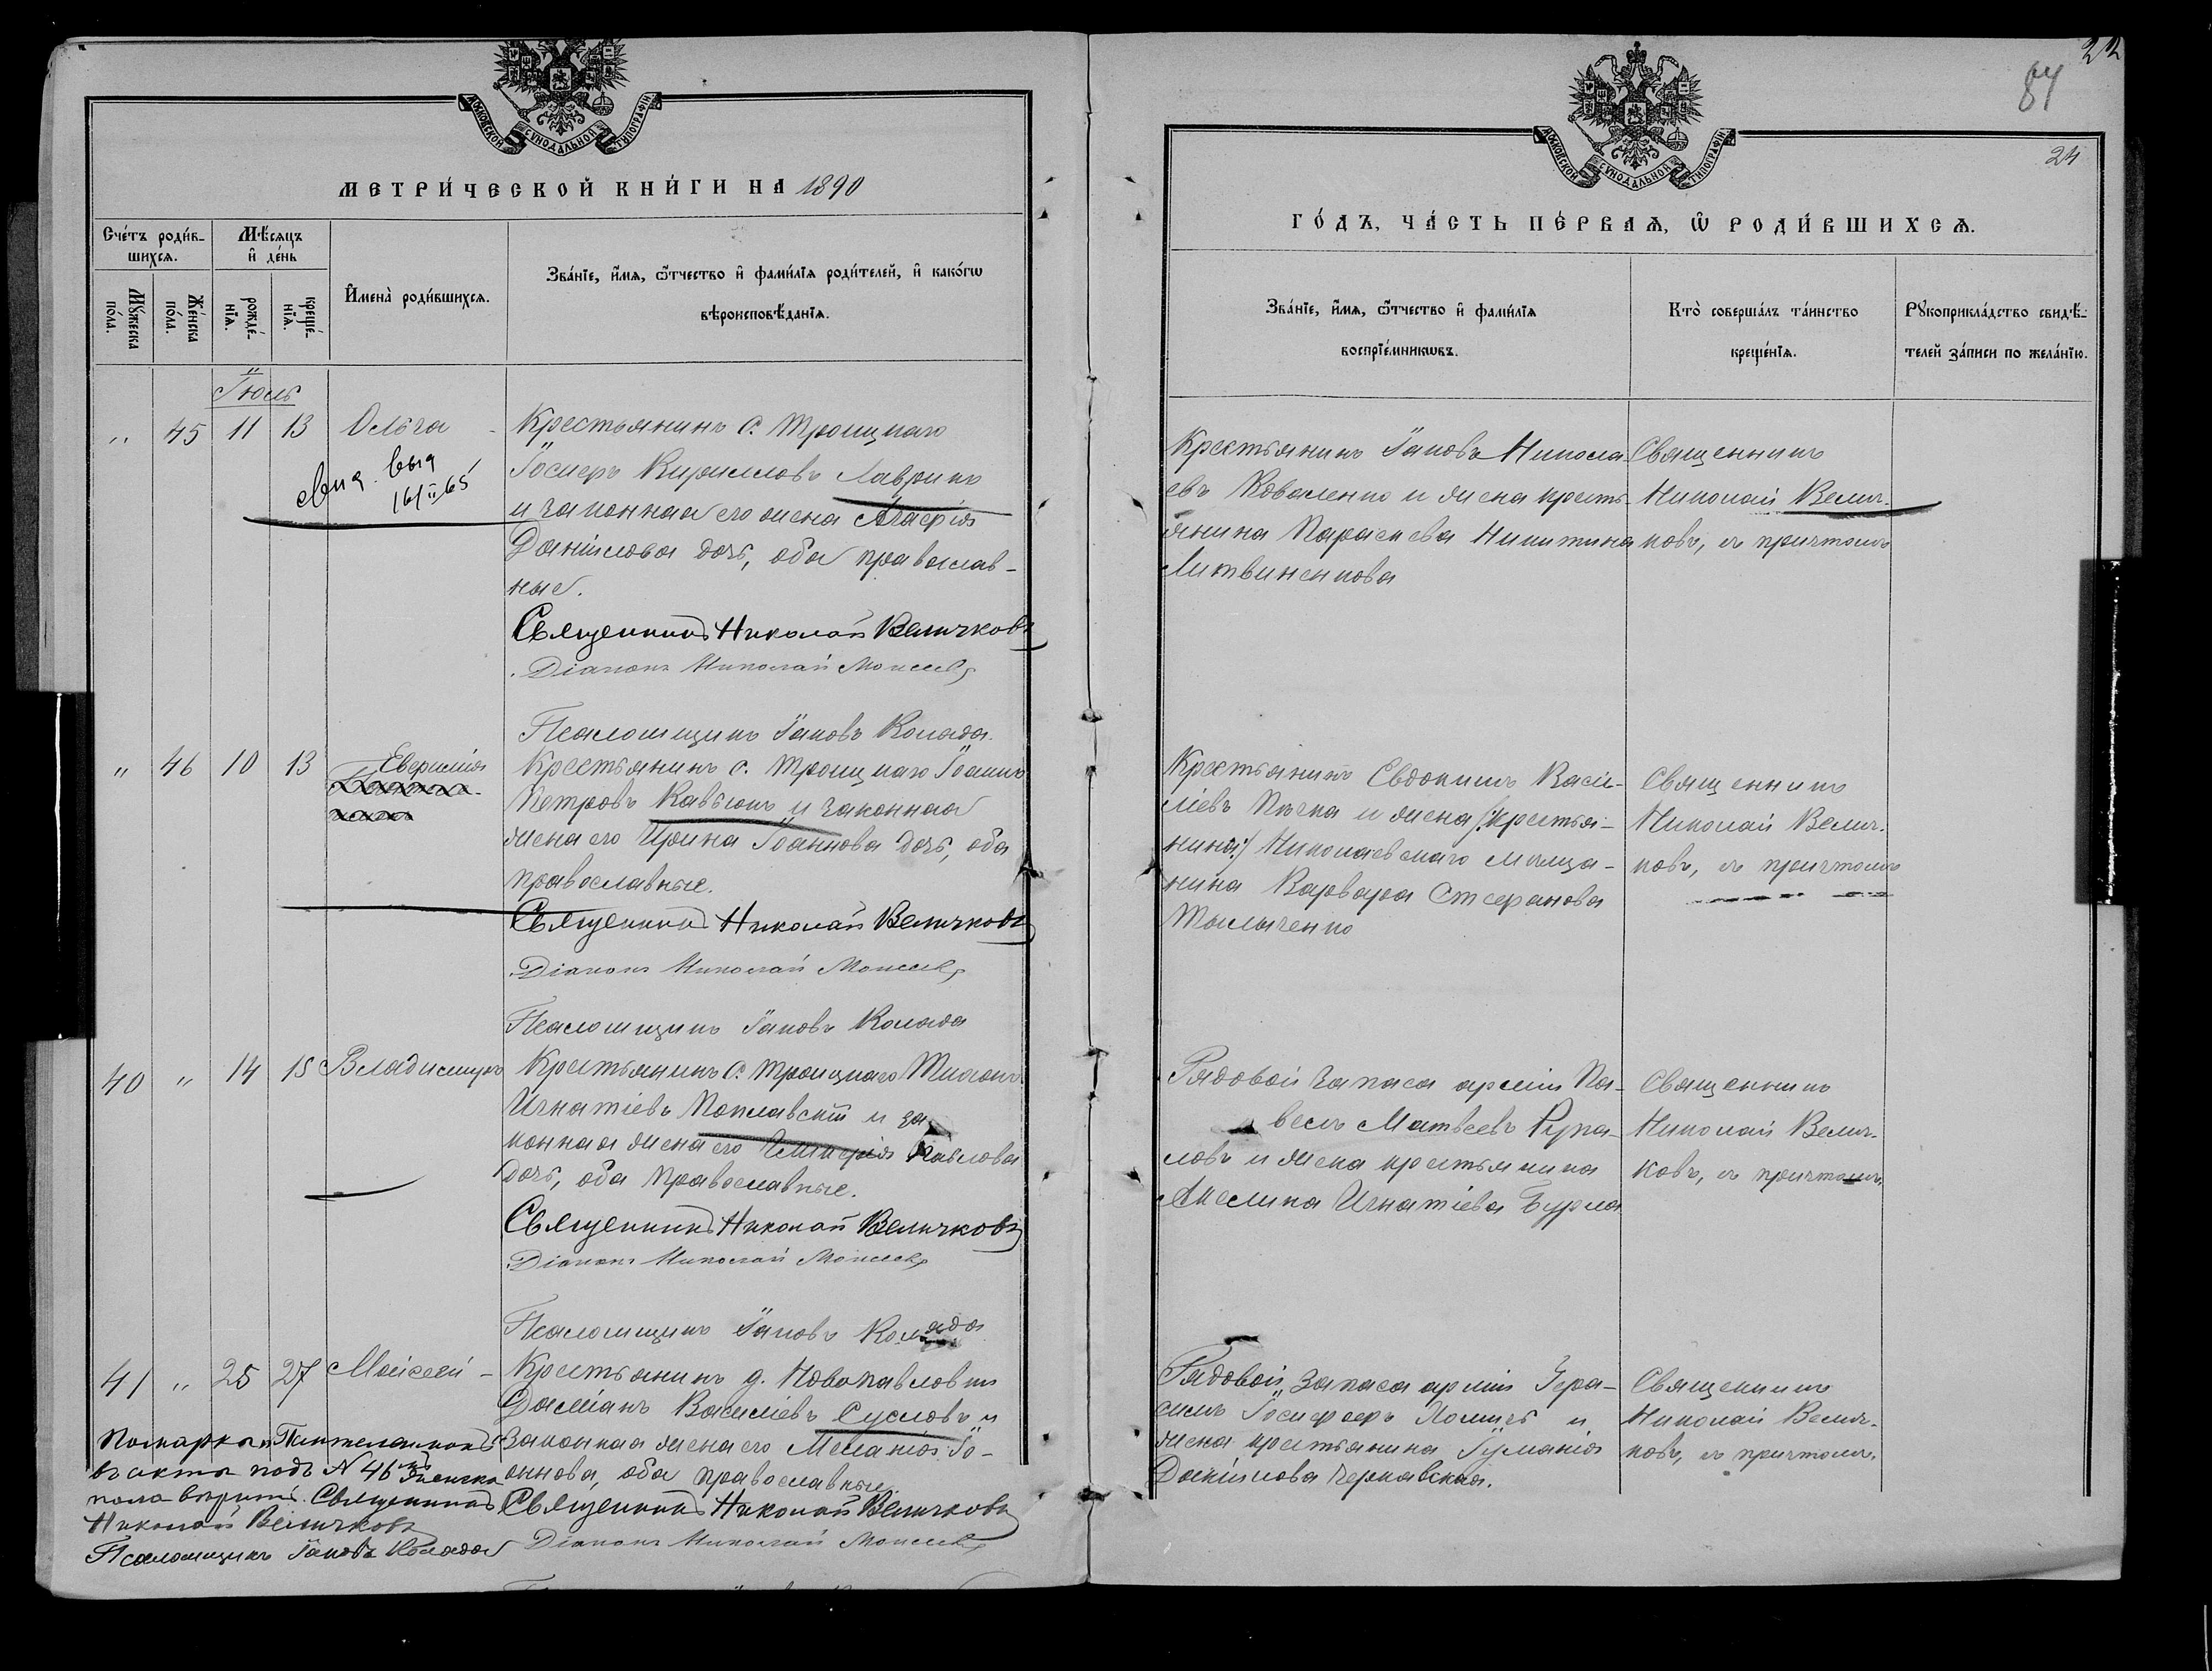 МОСКОВСКОЙ СѴНОДАЛЬНОЙ ТИПОГРАФІИ
МЕТРИ́ЧЕСКОЙ КНИ́ГИ НА 1890
Сче́тъ роди́в-
шихсѧ.
Мѣ́сѧцъ
и҆ де́нь
Мꙋ́жеска по́ла.
Же́нска по́ла.
рожде́-нїѧ.
креще́-нїѧ.
И҆мена̀ роди́вшихсѧ.
Зва́нїе, и҆́мѧ, ѻ҆́тчество и҆ фами́лїѧ роди́телей, и҆ како́гѡ
вѣроисповѣ́данїѧ.
Іюль
" 45 11 13 Ольга - Крестьянинъ с. Троицкаго
Іосифъ Кирилловъ Лаврикъ
и законная его жена Агафія
Даніилова дочь, оба православ-
ные.
Священникъ Николай Величковъ
Діаконъ Николай Моисеевъ
Псаломщикъ Іаковъ Коляда.
" 46 10 13 Евфимія Крестьянинъ с. Троицкаго Іоаннъ
Петровъ Кавьюкъ и законная
жена его Ирина Іоаннова дочь, оба
православные.
Священникъ Николай Величковъ
Діаконъ Николай Моисеевъ
Псаломщикъ Іаковъ Коляда
40 " 14 15 Владиміръ Крестьянинъ с. Троицкаго
Игнатіевъ Поплавскій и за-
конная жена его Гликерія Павлова
дочь, оба православные.
Священникъ Николай Величковъ
Діаконъ Николай Моисеевъ
Псаломщикъ Іаковъ Коляда
41 " 25 27 Моисей - Крестьянинъ д. Новопавловки
Даміанъ Василіевъ Сусловъ и
законная жена его Меланія Іо-
аннова, оба православные.
Священникъ Николай Величковъ
Діаконъ Николай Моисеевъ
Помарка
въ актѣ подъ N 46 женска
пола вѣрить. Священникъ
Николай Величковъ
Псаломщикъ Іаковъ Коляда
22
84
24
МОСКОВСКОЙ СѴНОДАЛЬНОЙ ТИПОГРАФІИ
ГО́ДЪ, ЧА́СТЬ ПЕ́РВАѦ, Ѡ҆ РОДИ́ВШИХСѦ.
Зва́нїе, и҆́мѧ, ѻ҆́тчество и҆ фами́лїѧ
воспрїе́мникѡвъ.
Кто̀ соверша́лъ та́инство
креще́нїѧ.
Рꙋкоприкла́дство свидѣ́-
телей за́писи по жела́нїю.
Крестьянинъ Іаковъ Никола-
евъ Коваленко и жена кресть-
янина Параскева Никитина
Литвиненкова
Священникъ
Николай Велич-
ковъ, съ причтомъ
Крестьянинъ Евдокимъ Васи-
ліевъ Пучка и жена (крестья-
нина) Николаевскаго мѣща-
нина Варвара Стефанова
Священникъ
Николай Велич-
ковъ, съ причтомъ
Рядовой запаса арміи Па-
велъ Матвѣевъ
и жена крестьянина
Акелина Игнатіева Бурма
Священникъ
Николай Велич-
ковъ, съ причтомъ.
Рядовой запаса арміи Гера-
симъ Хомичъ и
жена крестьянина Іуліанія
Даніилова Чернавская.
Священникъ
Николай Велич-
ковъ, съ причтомъ.